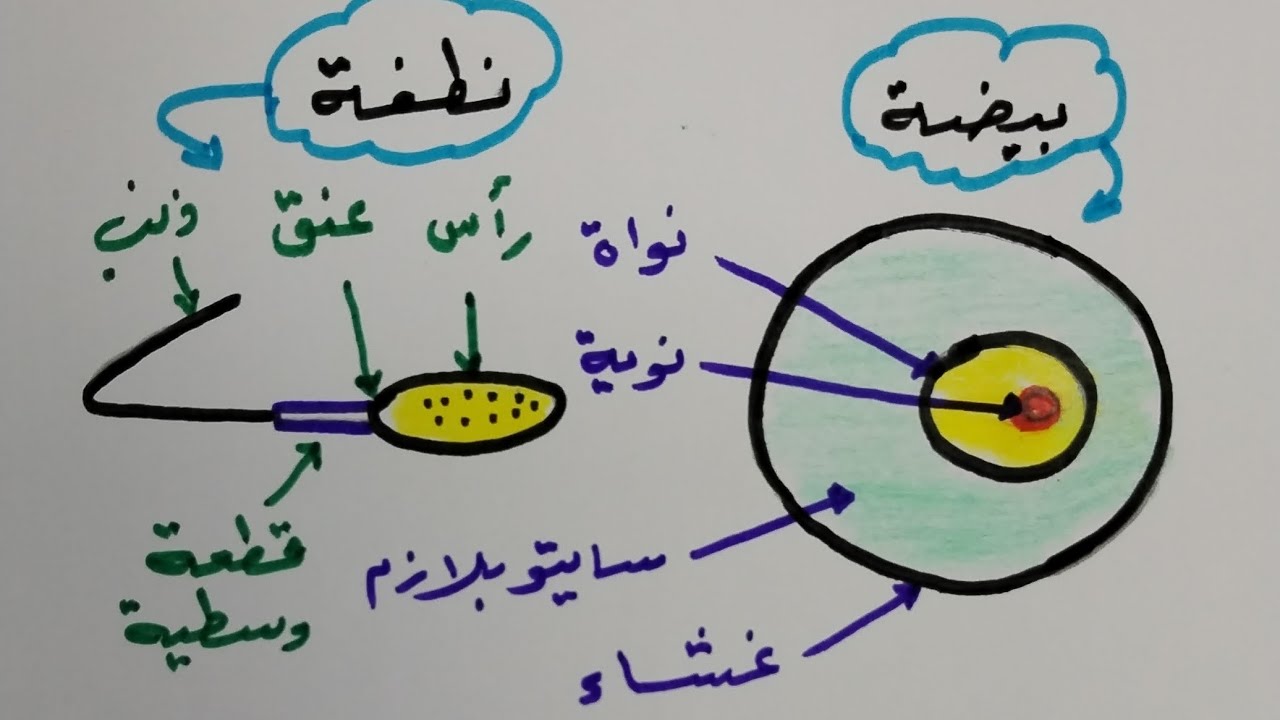 بيضة
نطفة
نواة
نوية
سايتوبلازم
غشاء
رأس
عنق
ذنب
قطعة
وسطية